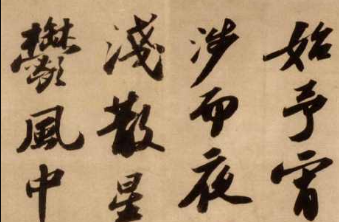 始予宵
涉而夜
淺散星
風中